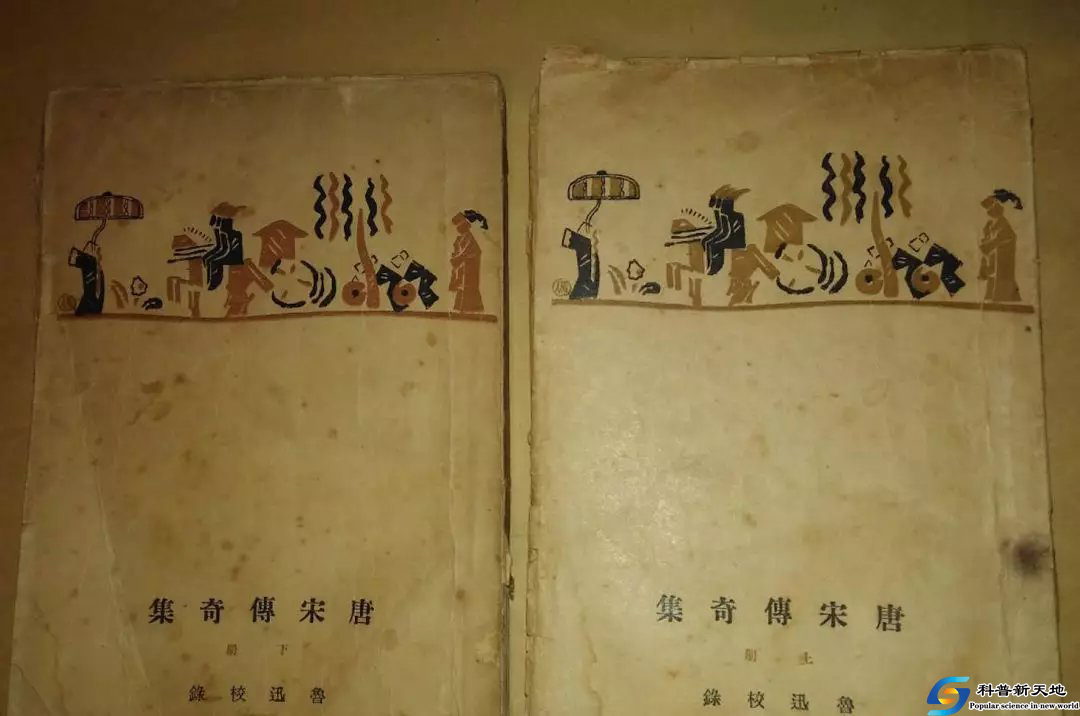 唐宋傳奇集
上冊
魯迅校錄
唐宋傳奇集
下冊
魯迅校錄
科普新天地
Popular science in new world